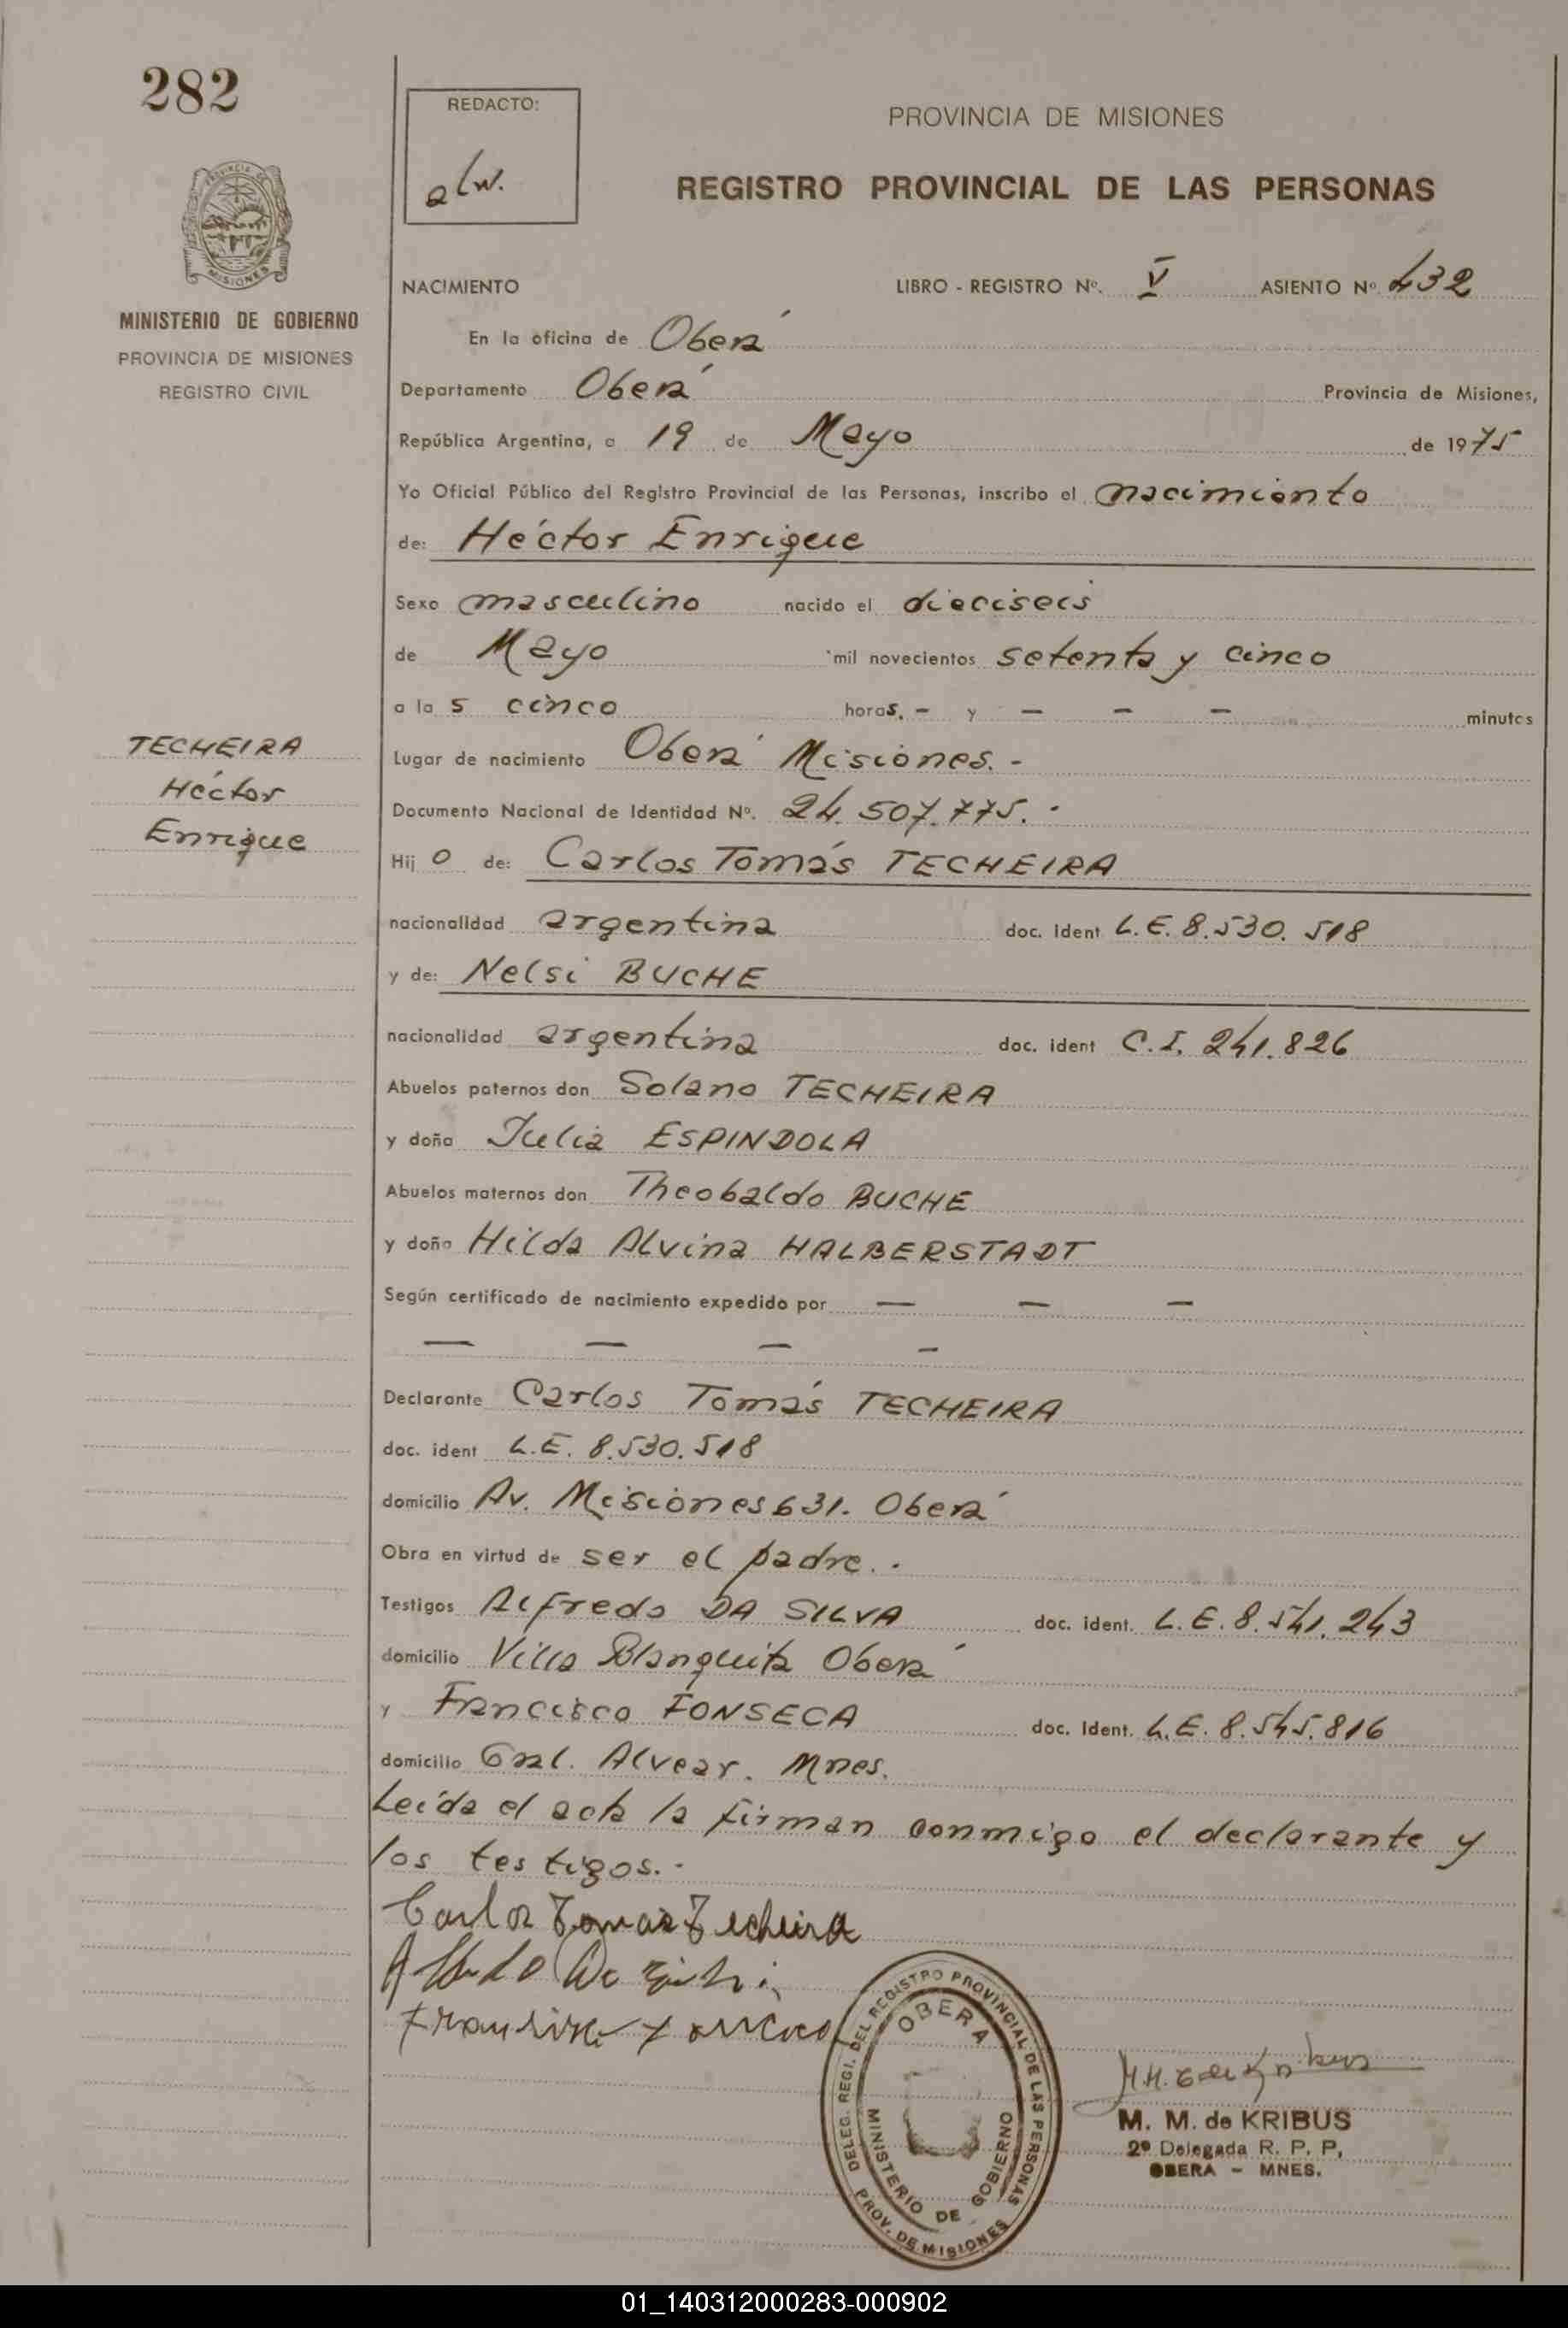 282
REDACTO:
alw.
PROVINCIA DE MISIONES
REGISTRO PROVINCIAL DE LAS PERSONAS
PROVINCIA DE
MISIONES
MINISTERIO DE GOBIERNO
PROVINCIA DE MISIONES
REGISTRO CIVIL
NACIMIENTO LIBRO - REGISTRO Nº. V ASIENTO Nº 432
En la oficina de Oberá
Departamento Oberá Provincia de Misiones,
República Argentina, a 19 de Mayo de 1975
Yo Oficial Público del Registro Provincial de las Personas, inscribo el nacimiento
de: Héctor Enrique
Sexo masculino nacido el dieciseis
de Mayo mil novecientos setenta y cinco
a la 5 cinco horas. - y - - - minutos
TECHEIRA
Héctor
Enrique
Lugar de nacimiento Oberá Misiones. -
Documento Nacional de Identidad Nº. 24.507.775. -
Hij o de: Carlos Tomás TECHEIRA
nacionalidad argentina doc. ident L.E. 8.530.518
y de: Nelsi BUCHE
nacionalidad argentina doc. ident C.I. 241.826
Abuelos paternos don Solano TECHEIRA
y doña Julia ESPINDOLA
Abuelos maternos don Theobaldo BUCHE
y doña Hilda Alvina HALBERSTADT
Según certificado de nacimiento expedido por — — —
— — — —
Declarante Carlos Tomás TECHEIRA
doc. ident L.E. 8.530.518
domicilio Av. Misiones 631. Oberá
Obra en virtud de ser el padre. -
Testigos Alfredo DA SILVA doc. ident. L.E. 8.541.243
domicilio Villa Blanquita Oberá
y Francisco FONSECA doc. Ident. L.E. 8.545.816
domicilio Gral. Alvear. Mnes.
Leída el acta la firman conmigo el declarante y
los testigos. -
Carlos Tomas Techeira
DELEG. REGI. DEL REGISTRO PROVINCIAL DE LAS PERSONAS
OBERA
MINISTERIO DE GOBIERNO
PROV. DE MISIONES
M. M. de KRIBUS
2º Delegada R. P. P.
OBERA - MNES.
01_140312000283-000902